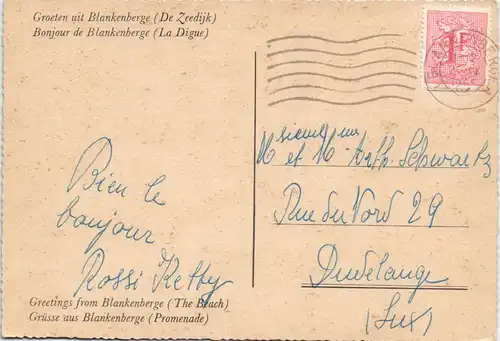 Groeten uit Blankenberge (De Zeedijk)
Bonjour de Blankenberge (La Digue)
1F
Bien le
bonjour
Rossi Ketty
Greetings from Blankenberge (The Beach)
Grüsse aus Blankenberge (Promenade)
Monsieur et Mme Arth. Schwartz
Rue du Nord 29
Dudelange
(Lux)